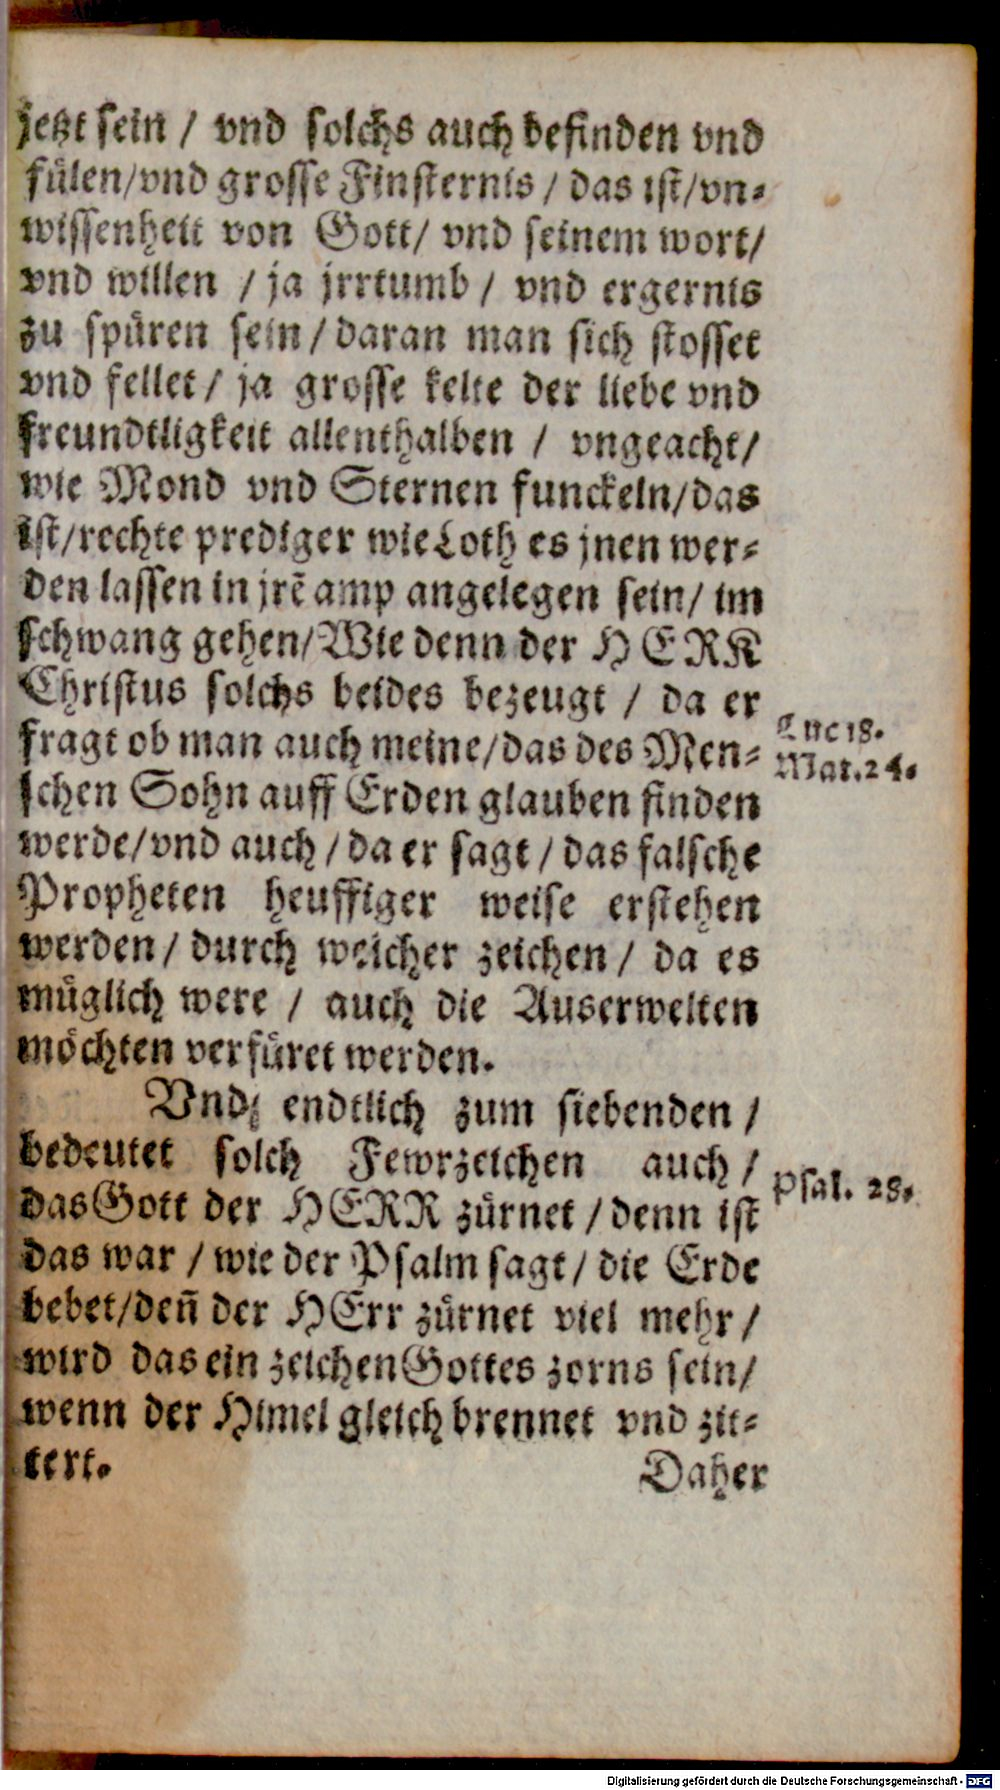 jetzt sein / vnd solchs auch befinden vnd
fülen/vnd grosse Finsternis / das ist/vn-
wissenheit von Gott/ vnd seinem wort/
vnd willen / ja jrrtumb / vnd ergernis
zu spüren sein / daran man sich stosset
vnd fellet / ja grosse kelte der liebe vnd
freundtligkeit allenthalben / vngeacht/
wie Mond vnd Sternen funckeln/das
ist/rechte prediger wie Loth es jnen wer-
den lassen in jrē amp angelegen sein/ im
schwang gehen/Wie denn der HERR
Christus solchs beides bezeugt / da er
Luc 18.
fragt ob man auch meine/das des Men-
Mat.24.
schen Sohn auff Erden glauben finden
werde/vnd auch / da er sagt / das falsche
Propheten heuffiger weise erstehen
werden / durch welcher zeichen / da es
müglich were / auch die Auserwelten
möchten verfüret werden.
Vnd endtlich zum siebenden /
bedeutet solch Fewrzeichen auch /
Psal. 28.
das Gott der HERR zürnet / denn ist
das war / wie der Psalm sagt / die Erde
bebet/deñ der HErr zürnet viel mehr /
wird das ein zeichen Gottes zorns sein/
wenn der Himel gleich brennet vnd zit-
tert.
Daher
Digitalisierung gefördert durch die Deutsche Forschungsgemeinschaft - DFG